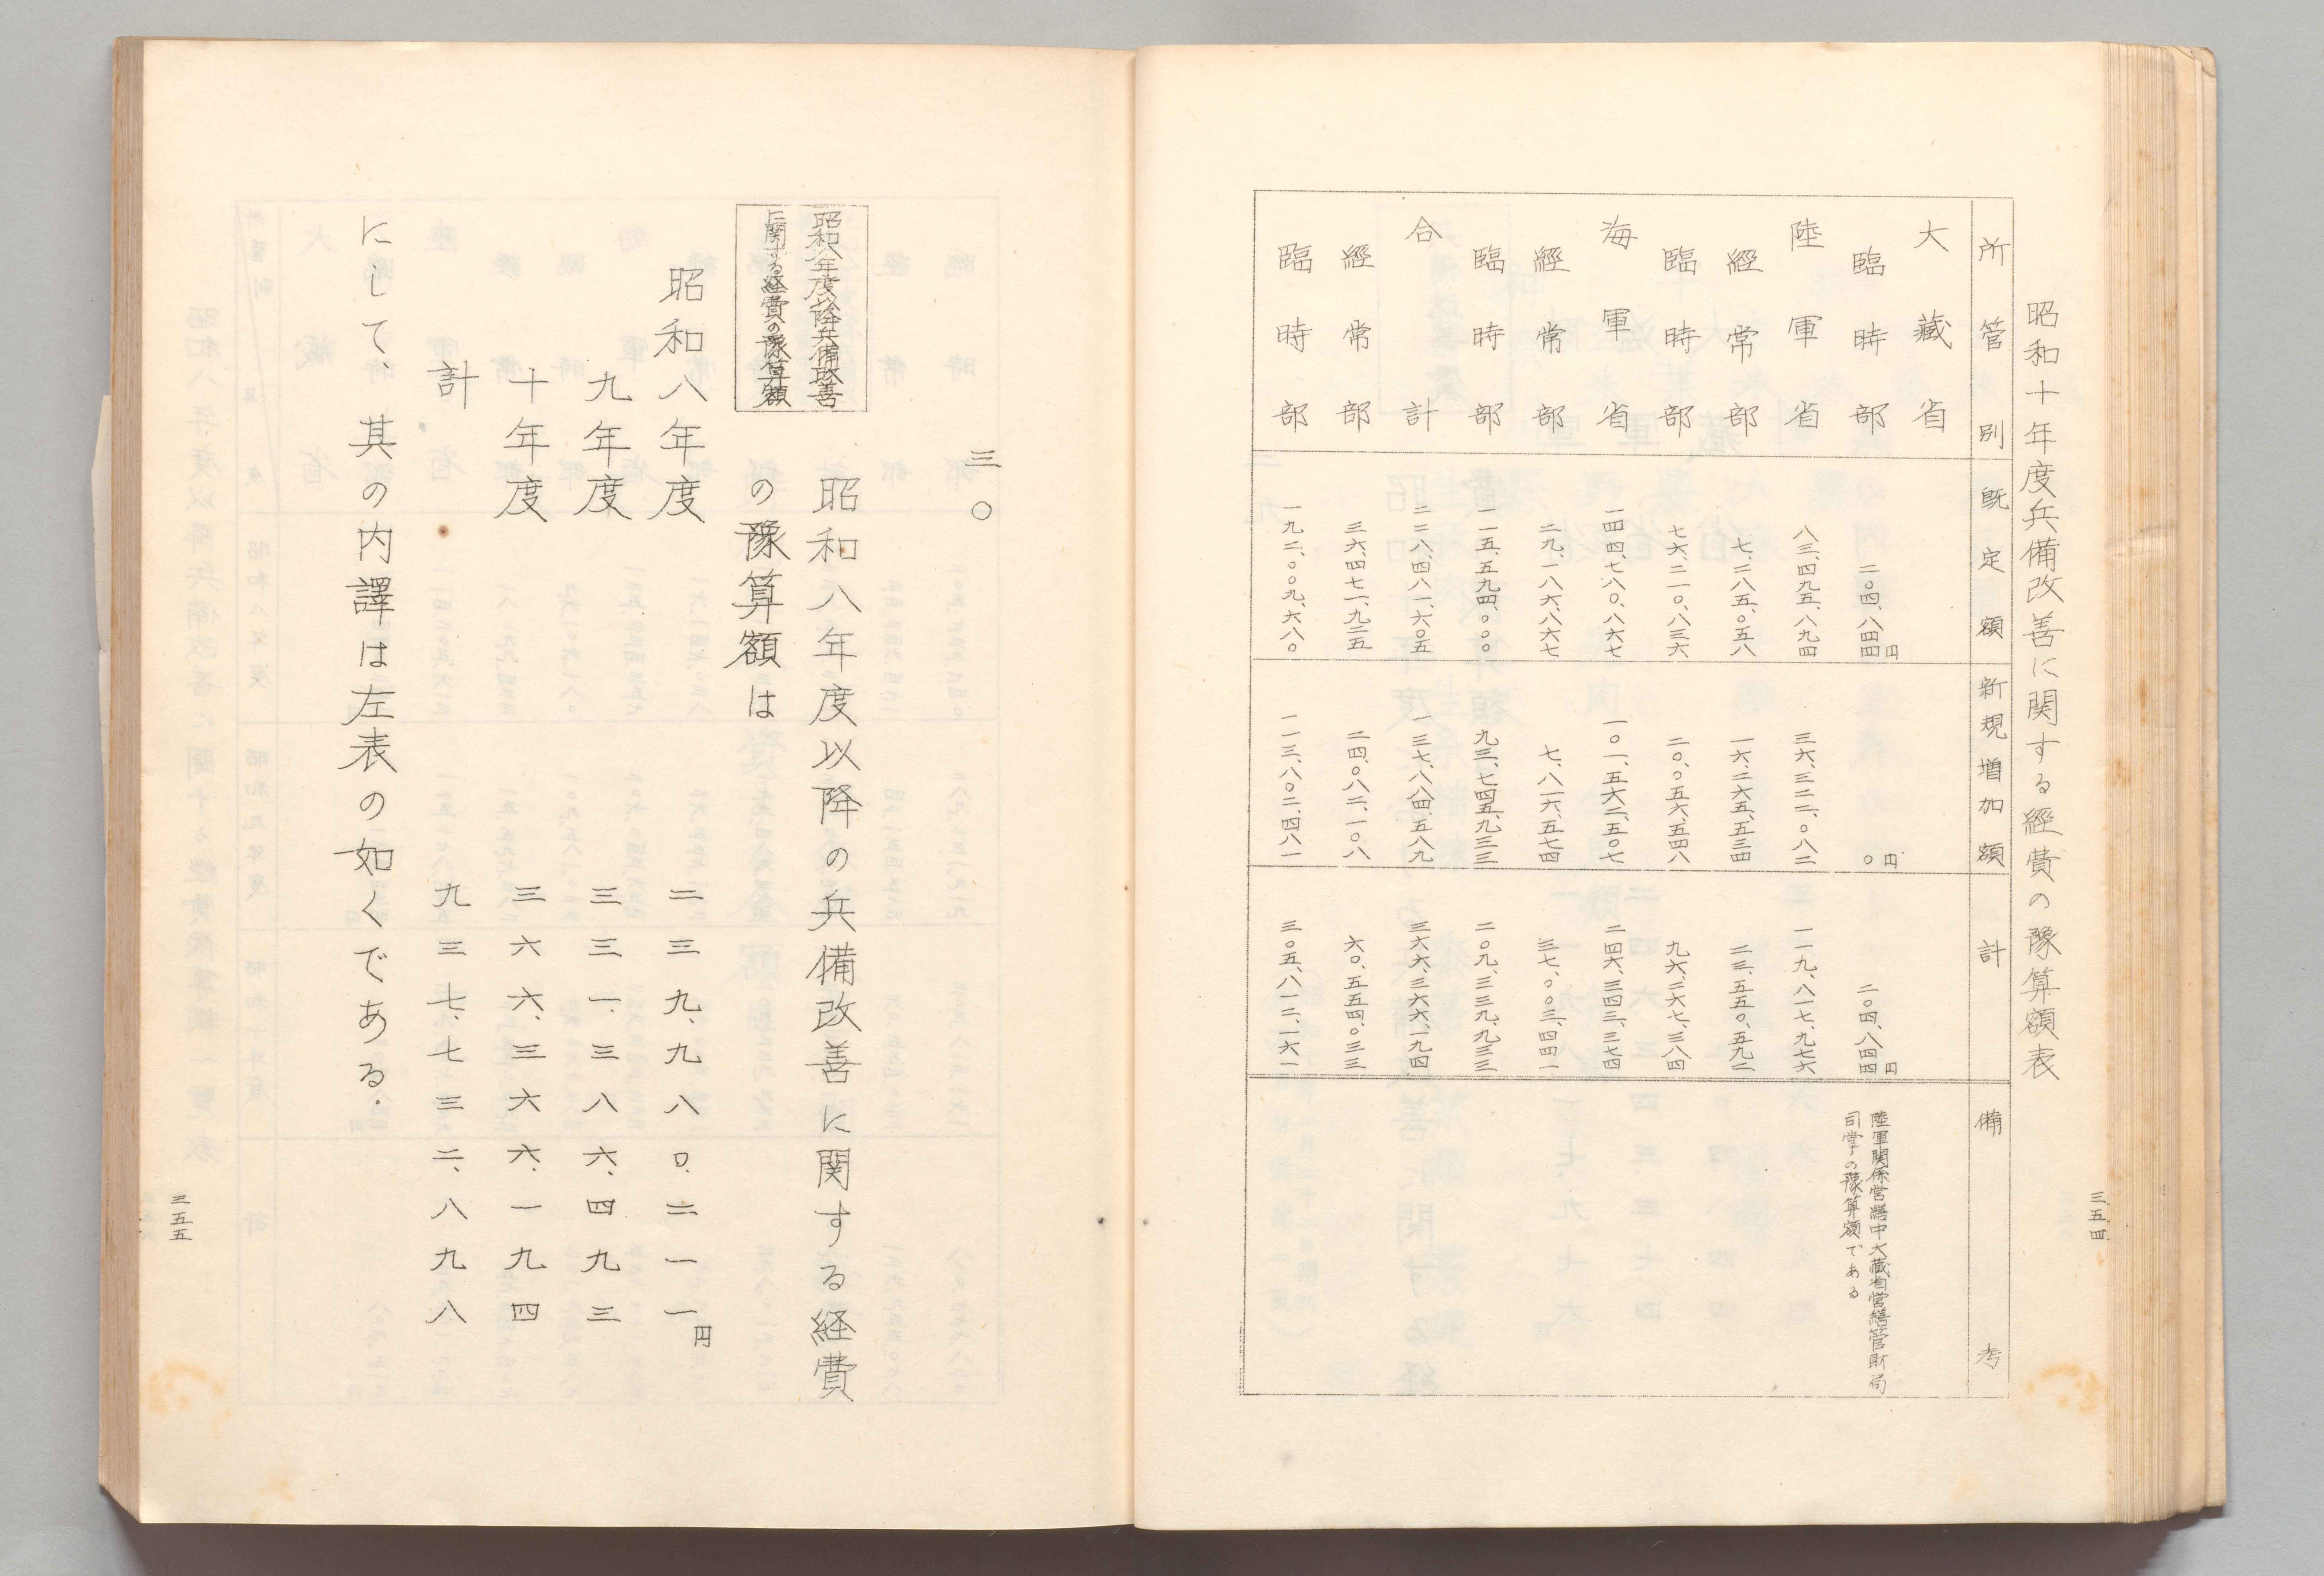 三五四
昭和十年度兵備改善に関する經費の豫算額表
所管別 既定額 新規増加額 計 備考
大藏省
臨時部 二〇四、八四四円 〇円 二〇四、八四四円
陸軍関係営繕中大藏省営繕管財局
司掌の豫算額である
陸軍省 八三、四九五、八九四 三六、三二二、〇八二 一一九、八一七、九七六
經常部 七、二八五、〇五八 一六、二六五、五三四 二三、五五〇、五九二
臨時部 七六、二一〇、八三六 二〇、〇五六、五四八 九六、二六七、三八四
海軍省 一四四、七八〇、八六七 一〇一、五六二、五〇七 二四六、三四三、三七四
經常部 二九、一八六、八六七 七、八一六、五七四 三七、〇〇三、四四一
臨時部 一一五、五九四、〇〇〇 九三、七四五、九三三 二〇九、三三九、九三三
合計 二二八、四八一、六〇五 一三七、八八四、五八九 三六六、三六六、一九四
經常部 三六、四七一、九二五 二四、〇八二、一〇八 六〇、五五四、〇三三
臨時部 一九二、〇〇九、六八〇 一一三、八〇二、四八一 三〇五、八一二、一六一
三〇
昭和八年度以降兵備改善
に関する経費の豫算額
昭和八年度以降の兵備改善に関する経費
の豫算額は
昭和八年度 二三九、九八〇、二一一円
九年度 三三一、三八六、四九三
十年度 三六六、三六六、一九四
計 九三七、七三二、八九八
にして、其の内譯は左表の如くである.
三五五